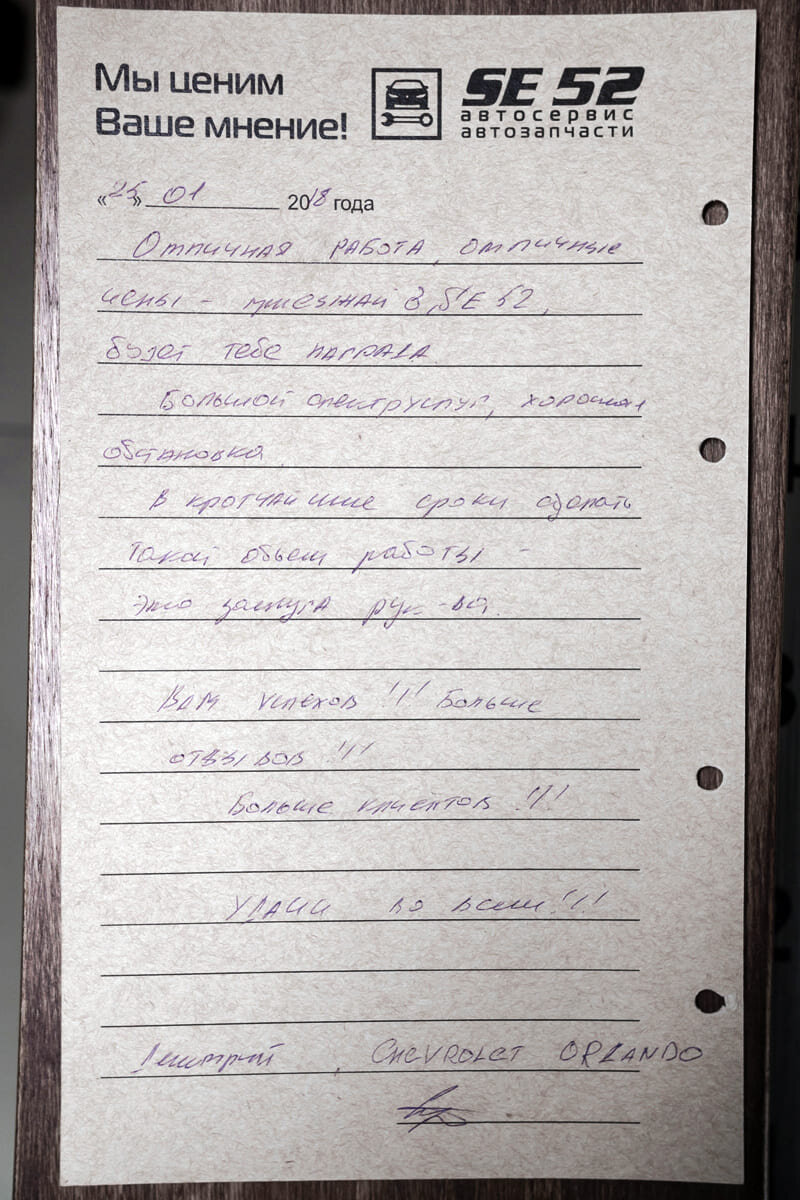 Мы ценим
Ваше мнение!
SE 52
автосервис
автозапчасти
«25» 01 2018 года
Отличная работа, отличные
цены - приезжай в SE 52,
будет тебе награда
Большой спектр услуг, хорошая
обстановка
В кротчайшие сроки сделать
такой объем работы -
это заслуга рук-ва.
Вам успехов !!! Больше
отзывов !!!
Больше клиентов !!!
Удачи во всем !!!
Дмитрий, CHEVROLET ORLANDO